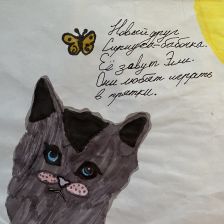 Новый друг
Сикушка-бабочка.
Её зовут Эли.
Они любят играть
в прятки.